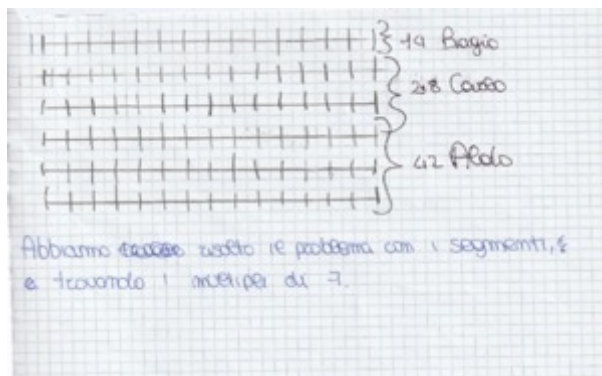 14 Biagio
28 Carlo
42 Aldo
Abbiamo risolto il problema con i segmenti,
e trovando i multipli di 7.